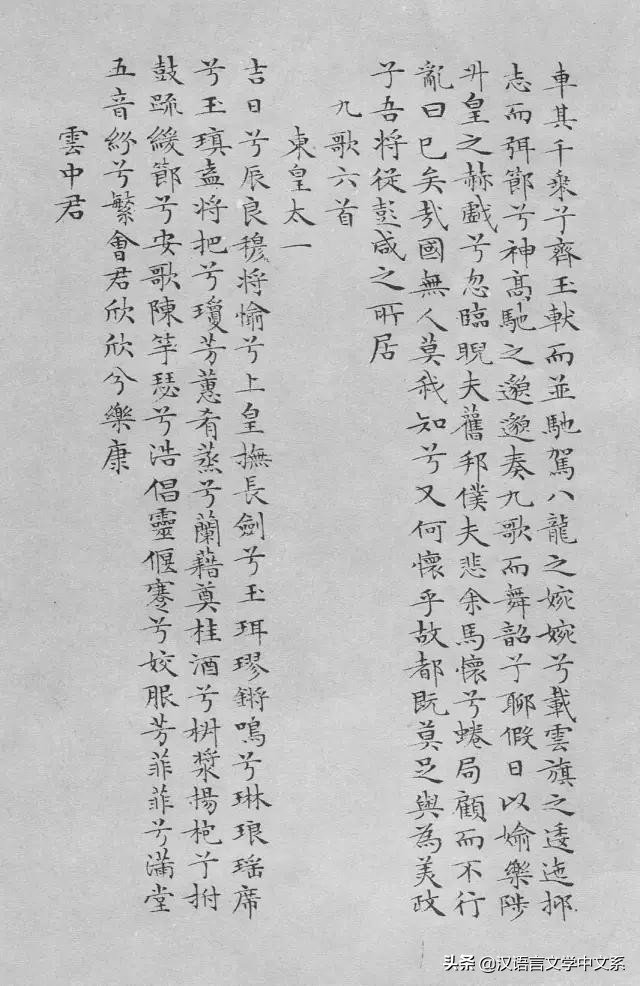 車其千乘兮齊玉軑而並馳駕八龍之婉婉兮載雲旗之逶迤抑
志而弭節兮神高馳之邈邈奏九歌而舞韶兮聊假日以媮樂陟
升皇之赫戲兮忽臨睨夫舊鄉僕夫悲余馬懷兮蜷局顧而不行
亂曰已矣哉國無人莫我知兮又何懷乎故都既莫足與為美政
兮吾將從彭咸之所居
九歌六首
東皇太一
吉日兮辰良穆將愉兮上皇撫長劍兮玉珥璆鏘鳴兮琳琅瑤席
兮玉瑱盍將把兮瓊芳蕙肴蒸兮蘭藉奠桂酒兮椒漿揚枹兮拊
鼓疏緩節兮安歌陳竽瑟兮浩倡靈偃蹇兮姣服芳菲菲兮滿堂
五音紛兮繁會君欣欣兮樂康
雲中君
头条 @汉语言文学中文系